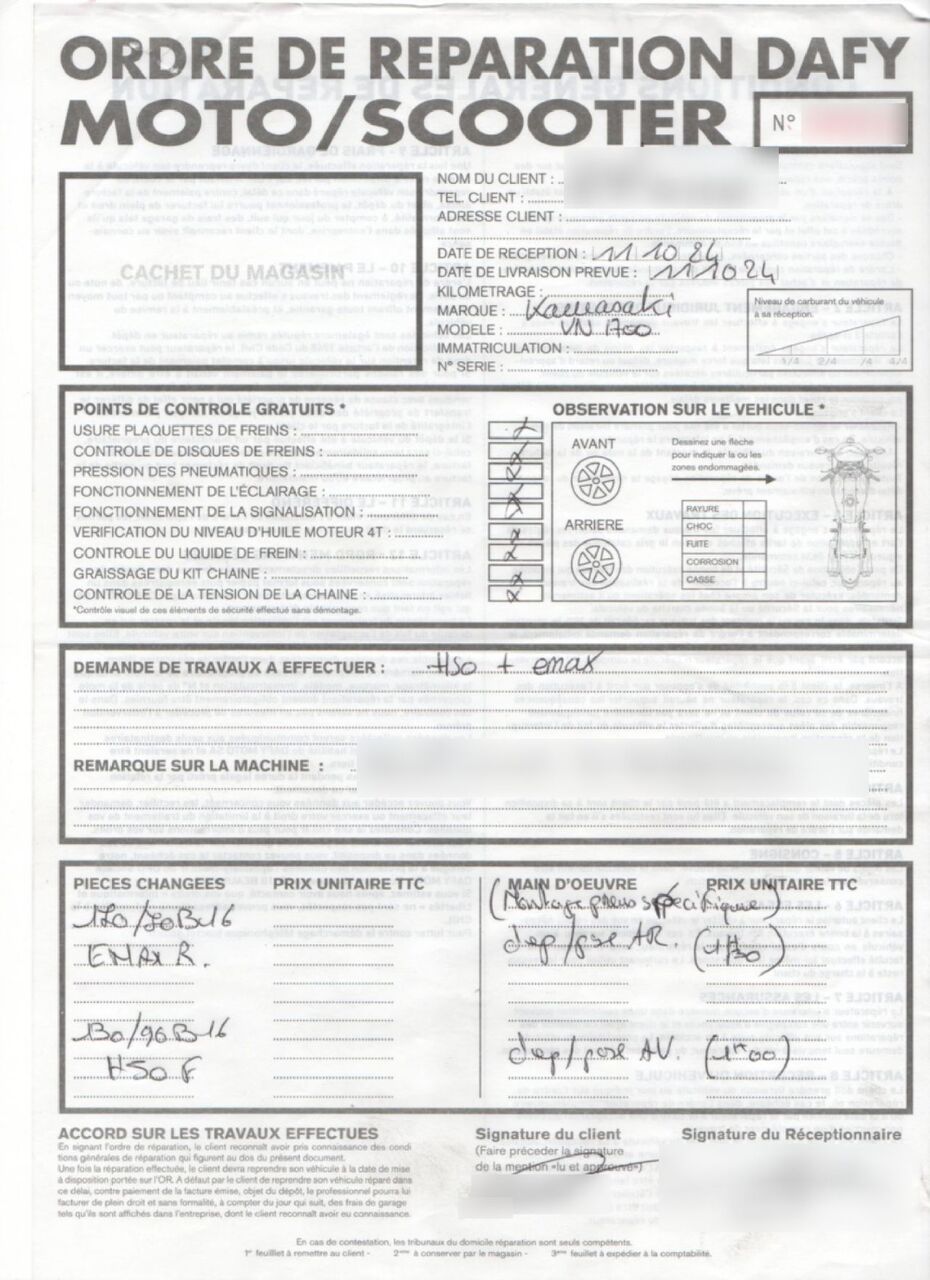 ORDRE DE REPARATION DAFY
MOTO/SCOOTER
N°
CACHET DU MAGASIN
NOM DU CLIENT :
TEL. CLIENT :
ADRESSE CLIENT :
DATE DE RECEPTION : 11 10 24
DATE DE LIVRAISON PREVUE : 11 10 24
KILOMETRAGE :
MARQUE : Kawasaki
MODELE : VN 1700
IMMATRICULATION :
N° SERIE :
Niveau de carburant du véhicule
à sa réception.
1/4 2/4 /4 4/4
POINTS DE CONTROLE GRATUITS *
USURE PLAQUETTES DE FREINS : x
CONTROLE DE DISQUES DE FREINS : x
PRESSION DES PNEUMATIQUES : x
FONCTIONNEMENT DE L'ÉCLAIRAGE : x
FONCTIONNEMENT DE LA SIGNALISATION : x
VERIFICATION DU NIVEAU D'HUILE MOTEUR 4T : x
CONTROLE DU LIQUIDE DE FREIN : x
GRAISSAGE DU KIT CHAINE : x
CONTROLE DE LA TENSION DE LA CHAINE : x
*Contrôle visuel de ces éléments de sécurité effectué sans démontage.
OBSERVATION SUR LE VEHICULE *
AVANT
ARRIERE
Dessinez une flèche
pour indiquer la ou les
zones endommagées.
RAYURE
CHOC
FUITE
CORROSION
CASSE
DEMANDE DE TRAVAUX A EFFECTUER : H50 + emax
REMARQUE SUR LA MACHINE :
PIECES CHANGEES PRIX UNITAIRE TTC
170/70B16
EMAX R.
130/90B16
H50 F
MAIN D'OEUVRE PRIX UNITAIRE TTC
(Montage pneus spécifique)
dep/pose AR. (1H30)
dep/pose AV. (1H00)
ACCORD SUR LES TRAVAUX EFFECTUES
En signant l'ordre de réparation, le client reconnaît avoir pris connaissance des condi
tions générales de réparation qui figurent au dos du présent document.
Une fois la réparation effectuée, le client devra reprendre son véhicule à la date de mise
à disposition portée sur l'OR. A défaut par le client de reprendre son véhicule réparé dans
ce délai, contre paiement de la facture émise, objet du dépôt, le professionnel pourra lui
facturer de plein droit et sans formalité, à compter du jour qui suit, des frais de garage
tels qu'ils sont affichés dans l'entreprise, dont le client reconnaît avoir eu connaissance.
Signature du client
(Faire précéder la signature
de la mention «lu et approuvé»)
Signature du Réceptionnaire
En cas de contestation, les tribunaux du domicile réparation sont seuls compétents.
1er feuillet à remettre au client - 2ème à conserver par le magasin - 3ème feuillet à expédier à la comptabilité.